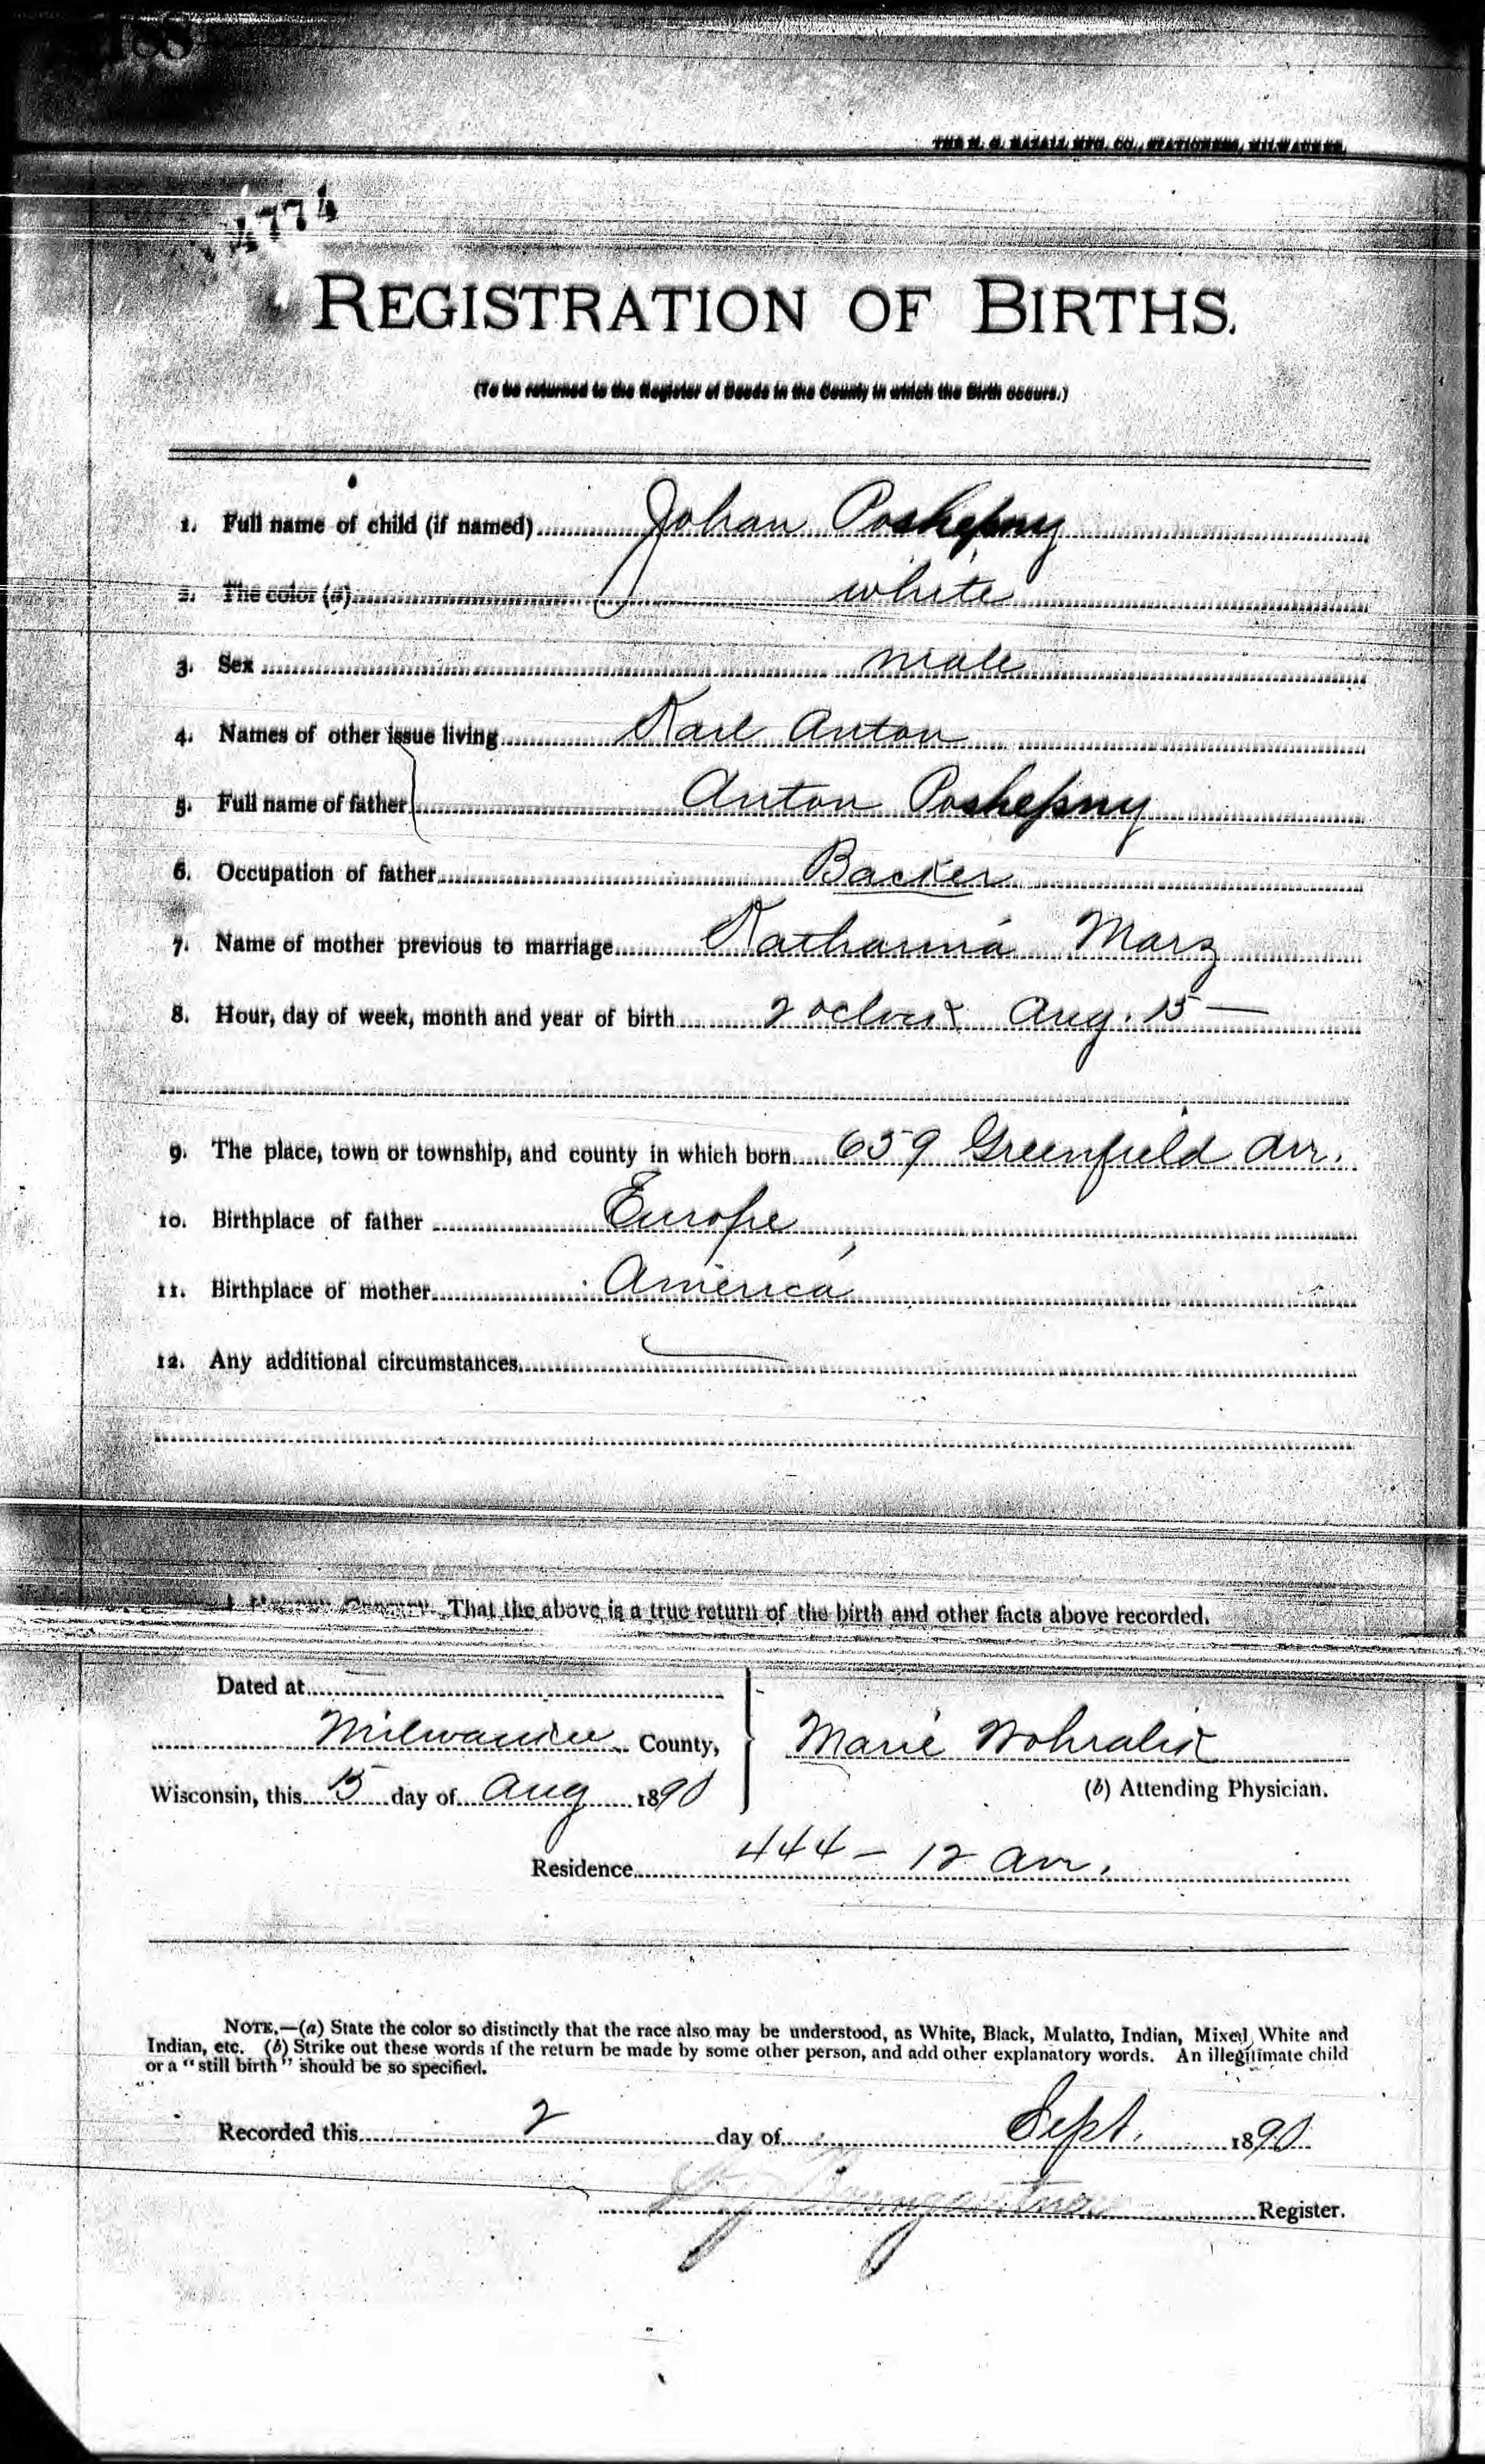 188
THE H. G. RAZALL MFG. CO., STATIONERS, MILWAUKEE.
4774
REGISTRATION OF BIRTHS.
(To be returned to the Register of Deeds in the County in which the Birth occurs.)
1. Full name of child (if named) Johan Poshepny
2. The color (a) white
3. Sex male
4. Names of other issue living Karl Anton
5. Full name of father Anton Poshepny
6. Occupation of father Backer
7. Name of mother previous to marriage Katharina Marz
8. Hour, day of week, month and year of birth 2 oclock Aug. 15 —
9. The place, town or township, and county in which born 659 Greenfield av.
10. Birthplace of father Europe
11. Birthplace of mother America
12. Any additional circumstances —
I HEREBY CERTIFY, That the above is a true return of the birth and other facts above recorded.
Dated at —
Milwaukee County,
Marie Wohralik
Wisconsin, this 15 day of Aug 1890
(b) Attending Physician.
Residence 444 – 12 av.
NOTE.—(a) State the color so distinctly that the race also may be understood, as White, Black, Mulatto, Indian, Mixed White and
Indian, etc. (b) Strike out these words if the return be made by some other person, and add other explanatory words. An illegitimate child
or a "still birth" should be so specified.
Recorded this 2 day of Sept. 1890
Baumgartner Register.